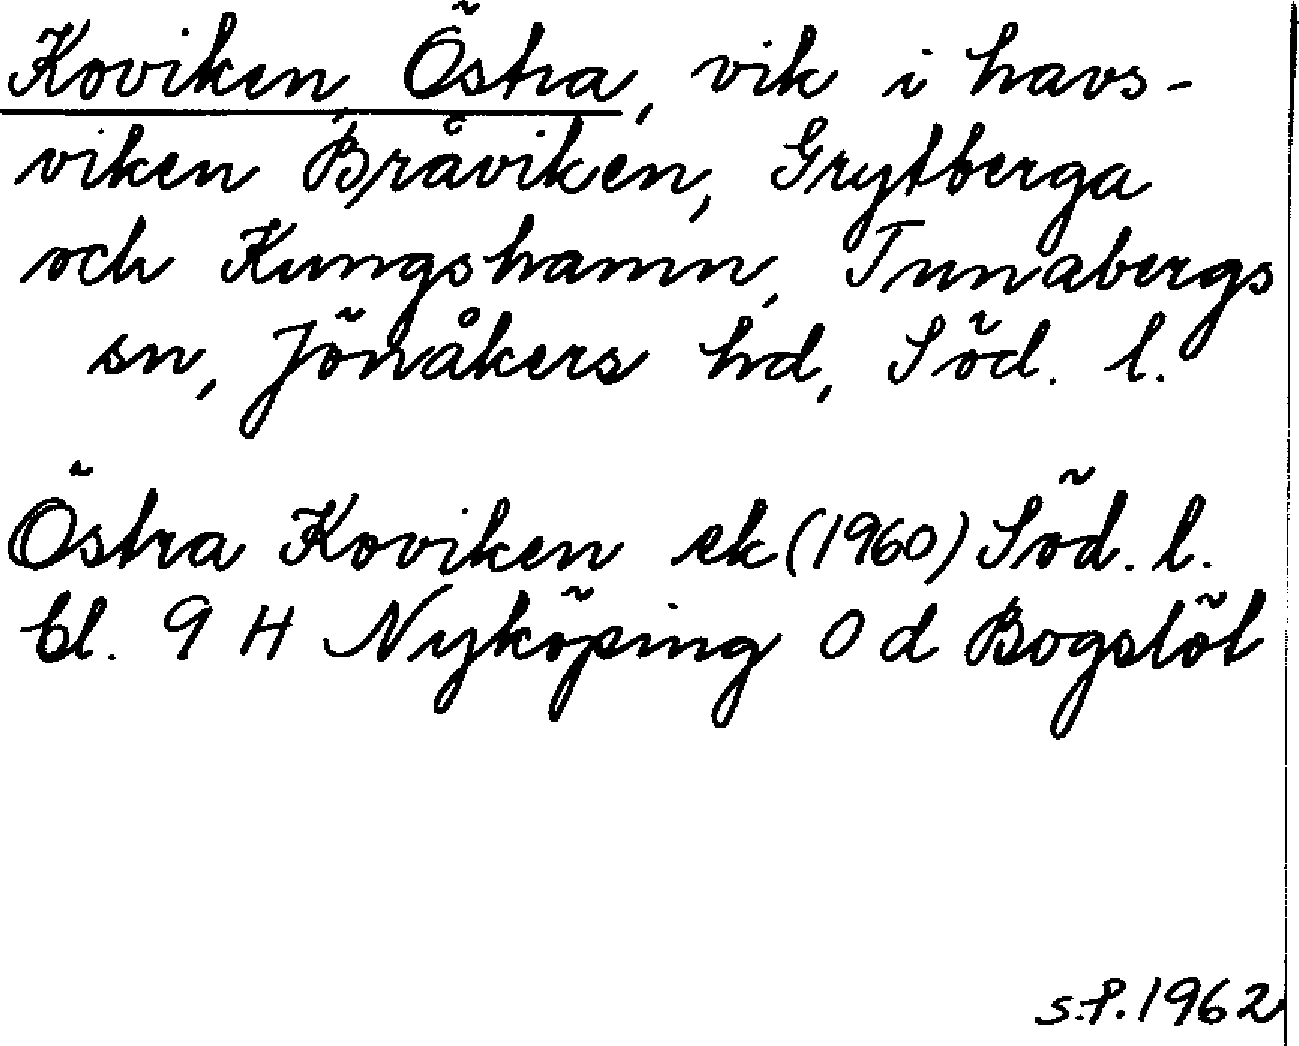 Koviken, Östra, vik i havs-
viken Bråviken, Grytberga
och Kungshamn, Tunabergs
sn, Jönåkers hd, Söd. l.
Östra Koviken ek (1960) Söd. l.
bl. 9 H Nyköping 0 d Bogslöt
S.P. 1962